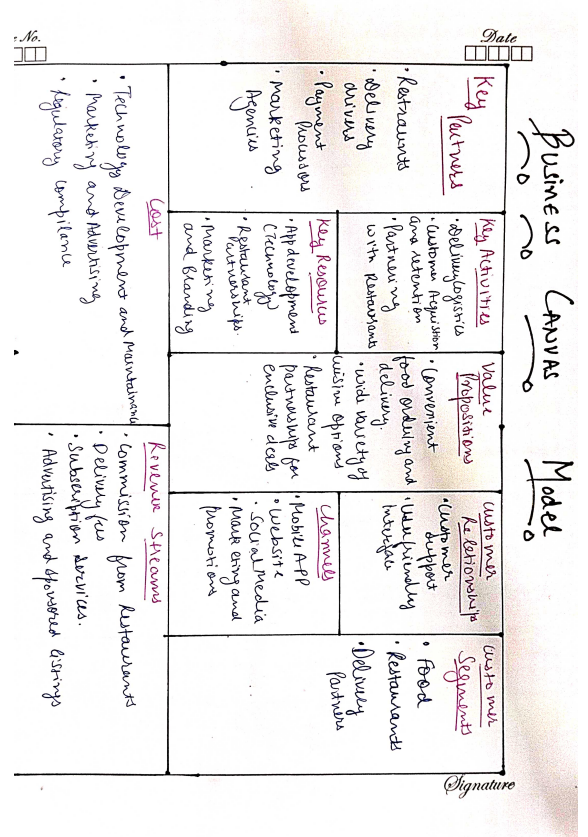 e No.
Date
Business Canvas Model
Key
Partners
• Restraunts
• Delivery
drivers
• Payment
Processors
• Marketing
Agencies
Key Activities
• Delivery Logistics
• Customer Acquistion
and retention
• Partnering
with Restaurants
Key Resources
• App development
(Technology)
• Restaurant
Partnerships.
• Marketing
and Branding
Value
Propositions
• Convenient
food ordering and
delivery.
• Wide variety of
cuisine options
• Restaurant
partnerships for
exclusive deals
Customer
Relationships
• Customer
Support
• User friendly
Interface
Channels
• Mobile APP
• Website
• Social Media
• Marketing and
Promotions
Customer
Segments
• Food
• Restaurants
• Delivery
Partners
Cost
• Technology Development and Maintainance
• Marketing and Advertising
• Regulatory Compilance
Revenue Streams
• Commission from Restaurants
• Delivery fees
• Subscription Services.
• Advertising and sponsored listings
Signature